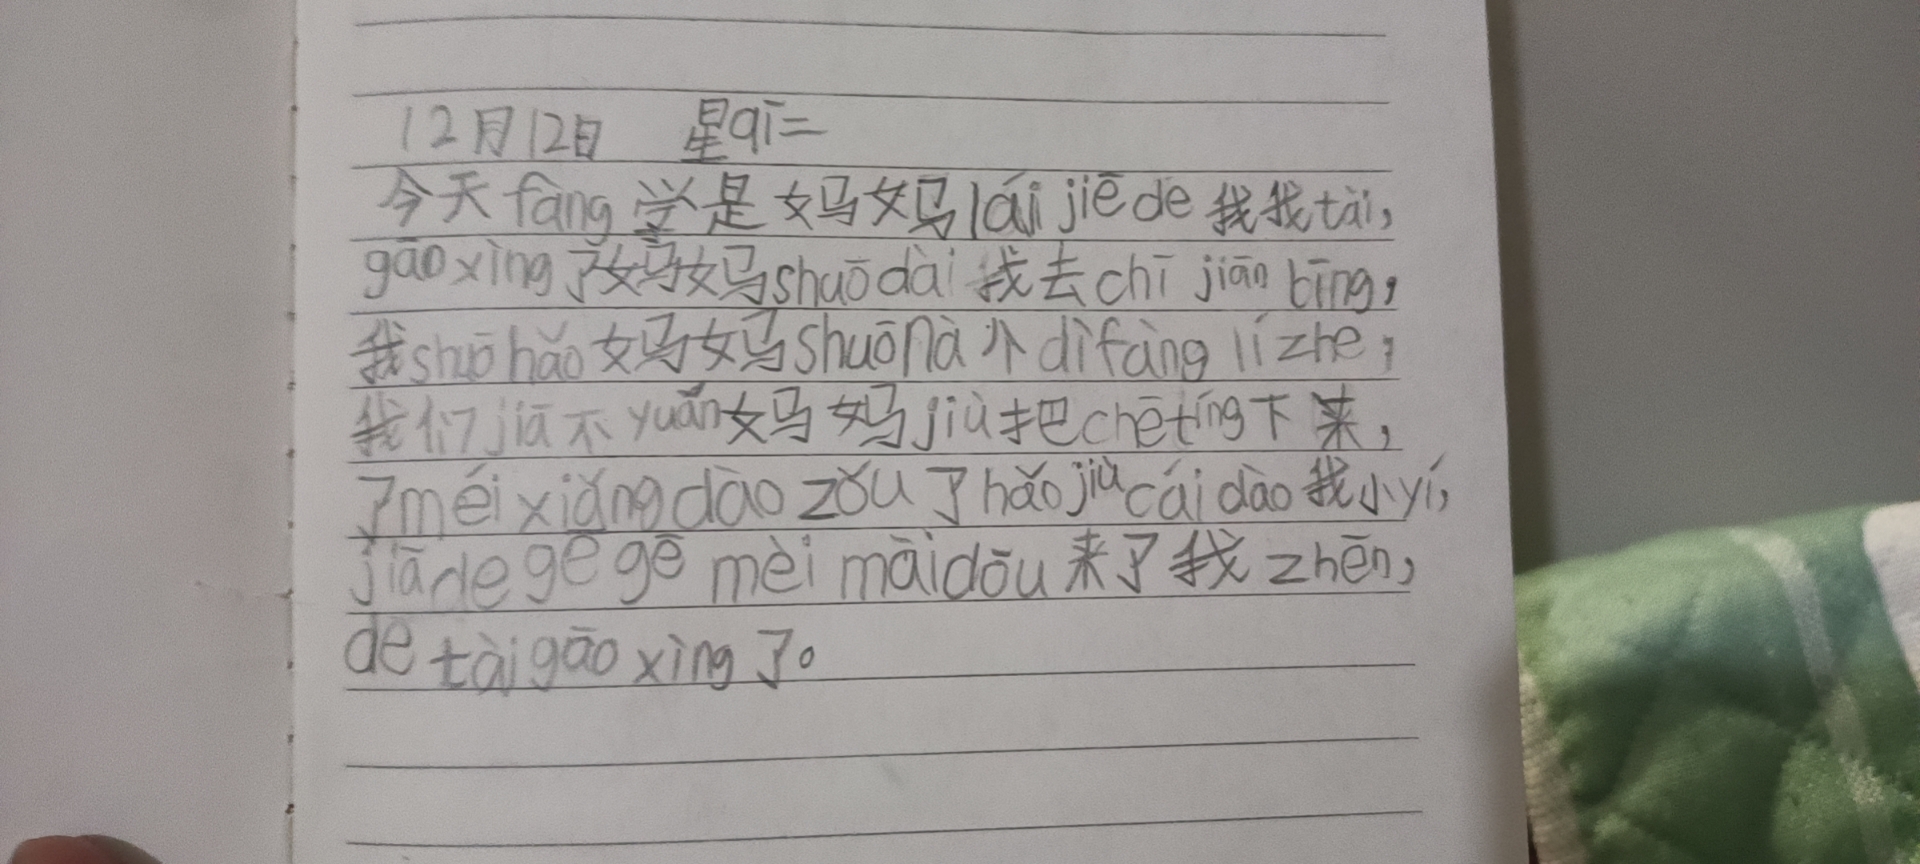 12月12日 星qī二
今天fàng学是妈妈lái jiē de 我我tài,
gāo xìng了妈妈shuō dài 我去chī jiān bīng,
我shuō hǎo 妈妈shuō nà 个dì fàng lí zhe,
我们jiā不yuǎn妈妈jiù把chē tíng下来,
了méi xiǎng dào zǒu了hǎo jiù cái dào我小yí,
jiā de gē gē mèi māi dōu来了我zhēn,
de tài gāo xìng了。